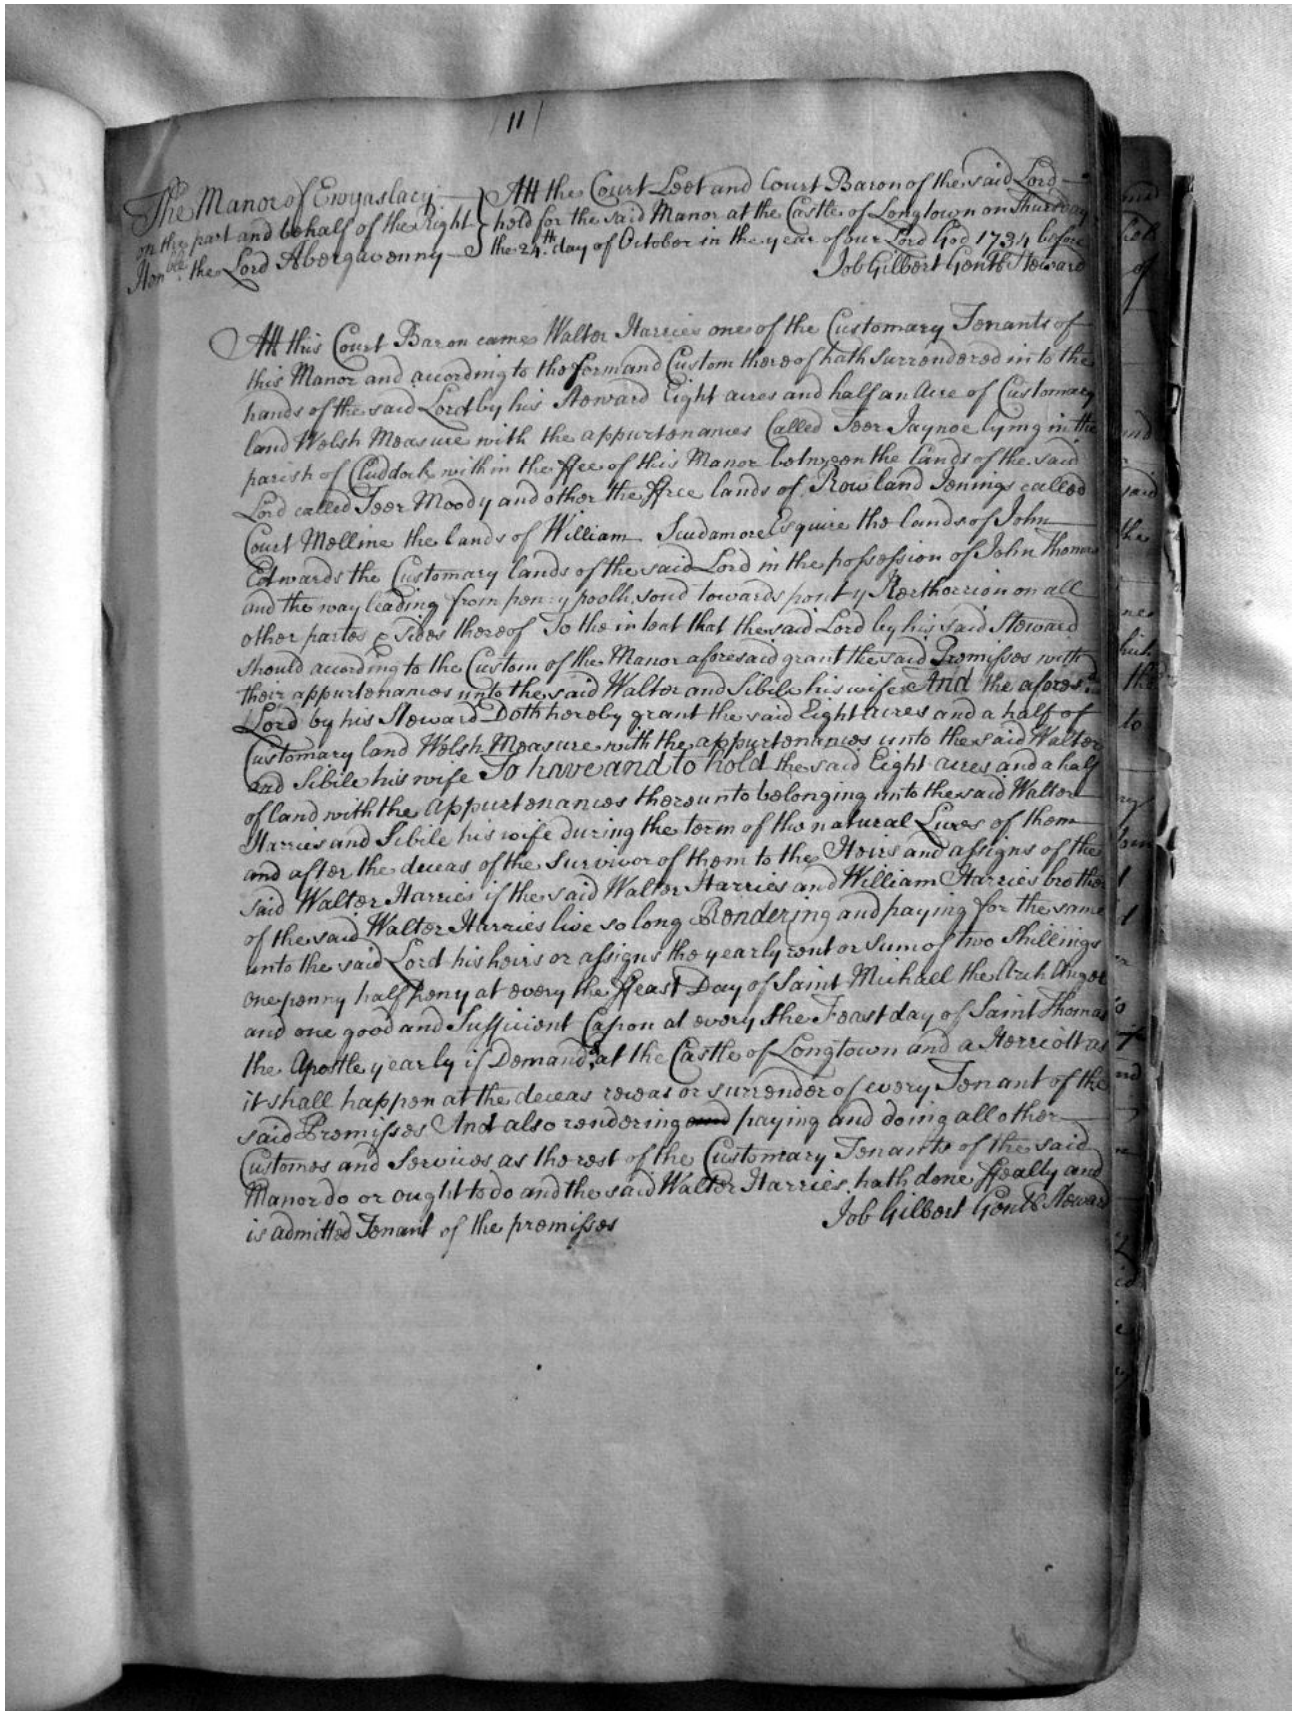 11
The Manor of Ewyaslacy
on the part and behalf of the Right
Honble. the Lord Abergavenny
Att the Court Leet and Court Baron of the said Lord
held for the said Manor at the Castle of Longtown on Thursday
the 24th. day of October in the year of our Lord God 1734 before
Job Gilbert Gentt Steward
Att this Court Baron came Walter Harries one of the Customary Tenants of
this Manor and acording to the form and Custom thereof hath Surrendered in to the
hands of the said Lord by his Steward Eight acres and half an Acre of Customary
land Welsh Measure with the appurtenances Called Teer Jaynoe lying in the
parish of Cluddock within the ffee of this Manor between the lands of the said
Lord called Teer Moody and other the ffree lands of Rowland Jenings called
Court Melline the lands of William Scudamore Esquire the lands of John
Edwards the Customary lands of the said Lord in the possession of John Thomas
and the way leading from pen y poolh soud towards pont y on all
other partes & Sides thereof To the intent that the said Lord by his said Steward
should acording to the Custom of the Manor aforesaid grant the said Premisses with
their appurtenances unto the said Walter and Sibile his wife And the aforesd.
Lord by his Steward Doth hereby grant the said Eight acres and a half of
Customary land Welsh Measure with the appurtenances unto the said Walter
and Sibile his wife To have and to hold the said Eight acres and a half
of land with the Appurtenances thereunto belonging unto the said Walter
Harries and Sibile his wife during the term of the natural Lives of them
and after the deceas of the Survivor of them to the Heirs and assigns of the
said Walter Harries if the said Walter Harries and William Harries brother
of the said Walter Harries live so long Rendering and paying for the same
unto the said Lord his heirs or assigns the yearly rent or Sum of two Shillings
one penny half peny at every the ffeast Day of Saint Michaell the Arch Angel
and one good and Sufficient Capon at every the Feast day of Saint Thomas
the Apostle yearly if Demandd. at the Castle of Longtown and a Herriott as
it shall happen at the deceas or surrender of every Tenant of the
said Premisses And also rendering and paying and doing all other
Customes and Services as the rest of the Customary Tenants of the said
Manor do or ought to do and the said Walter Harries hath done ffealty and
is admitted Tenant of the premisses
Job Gilbert Gentt Steward